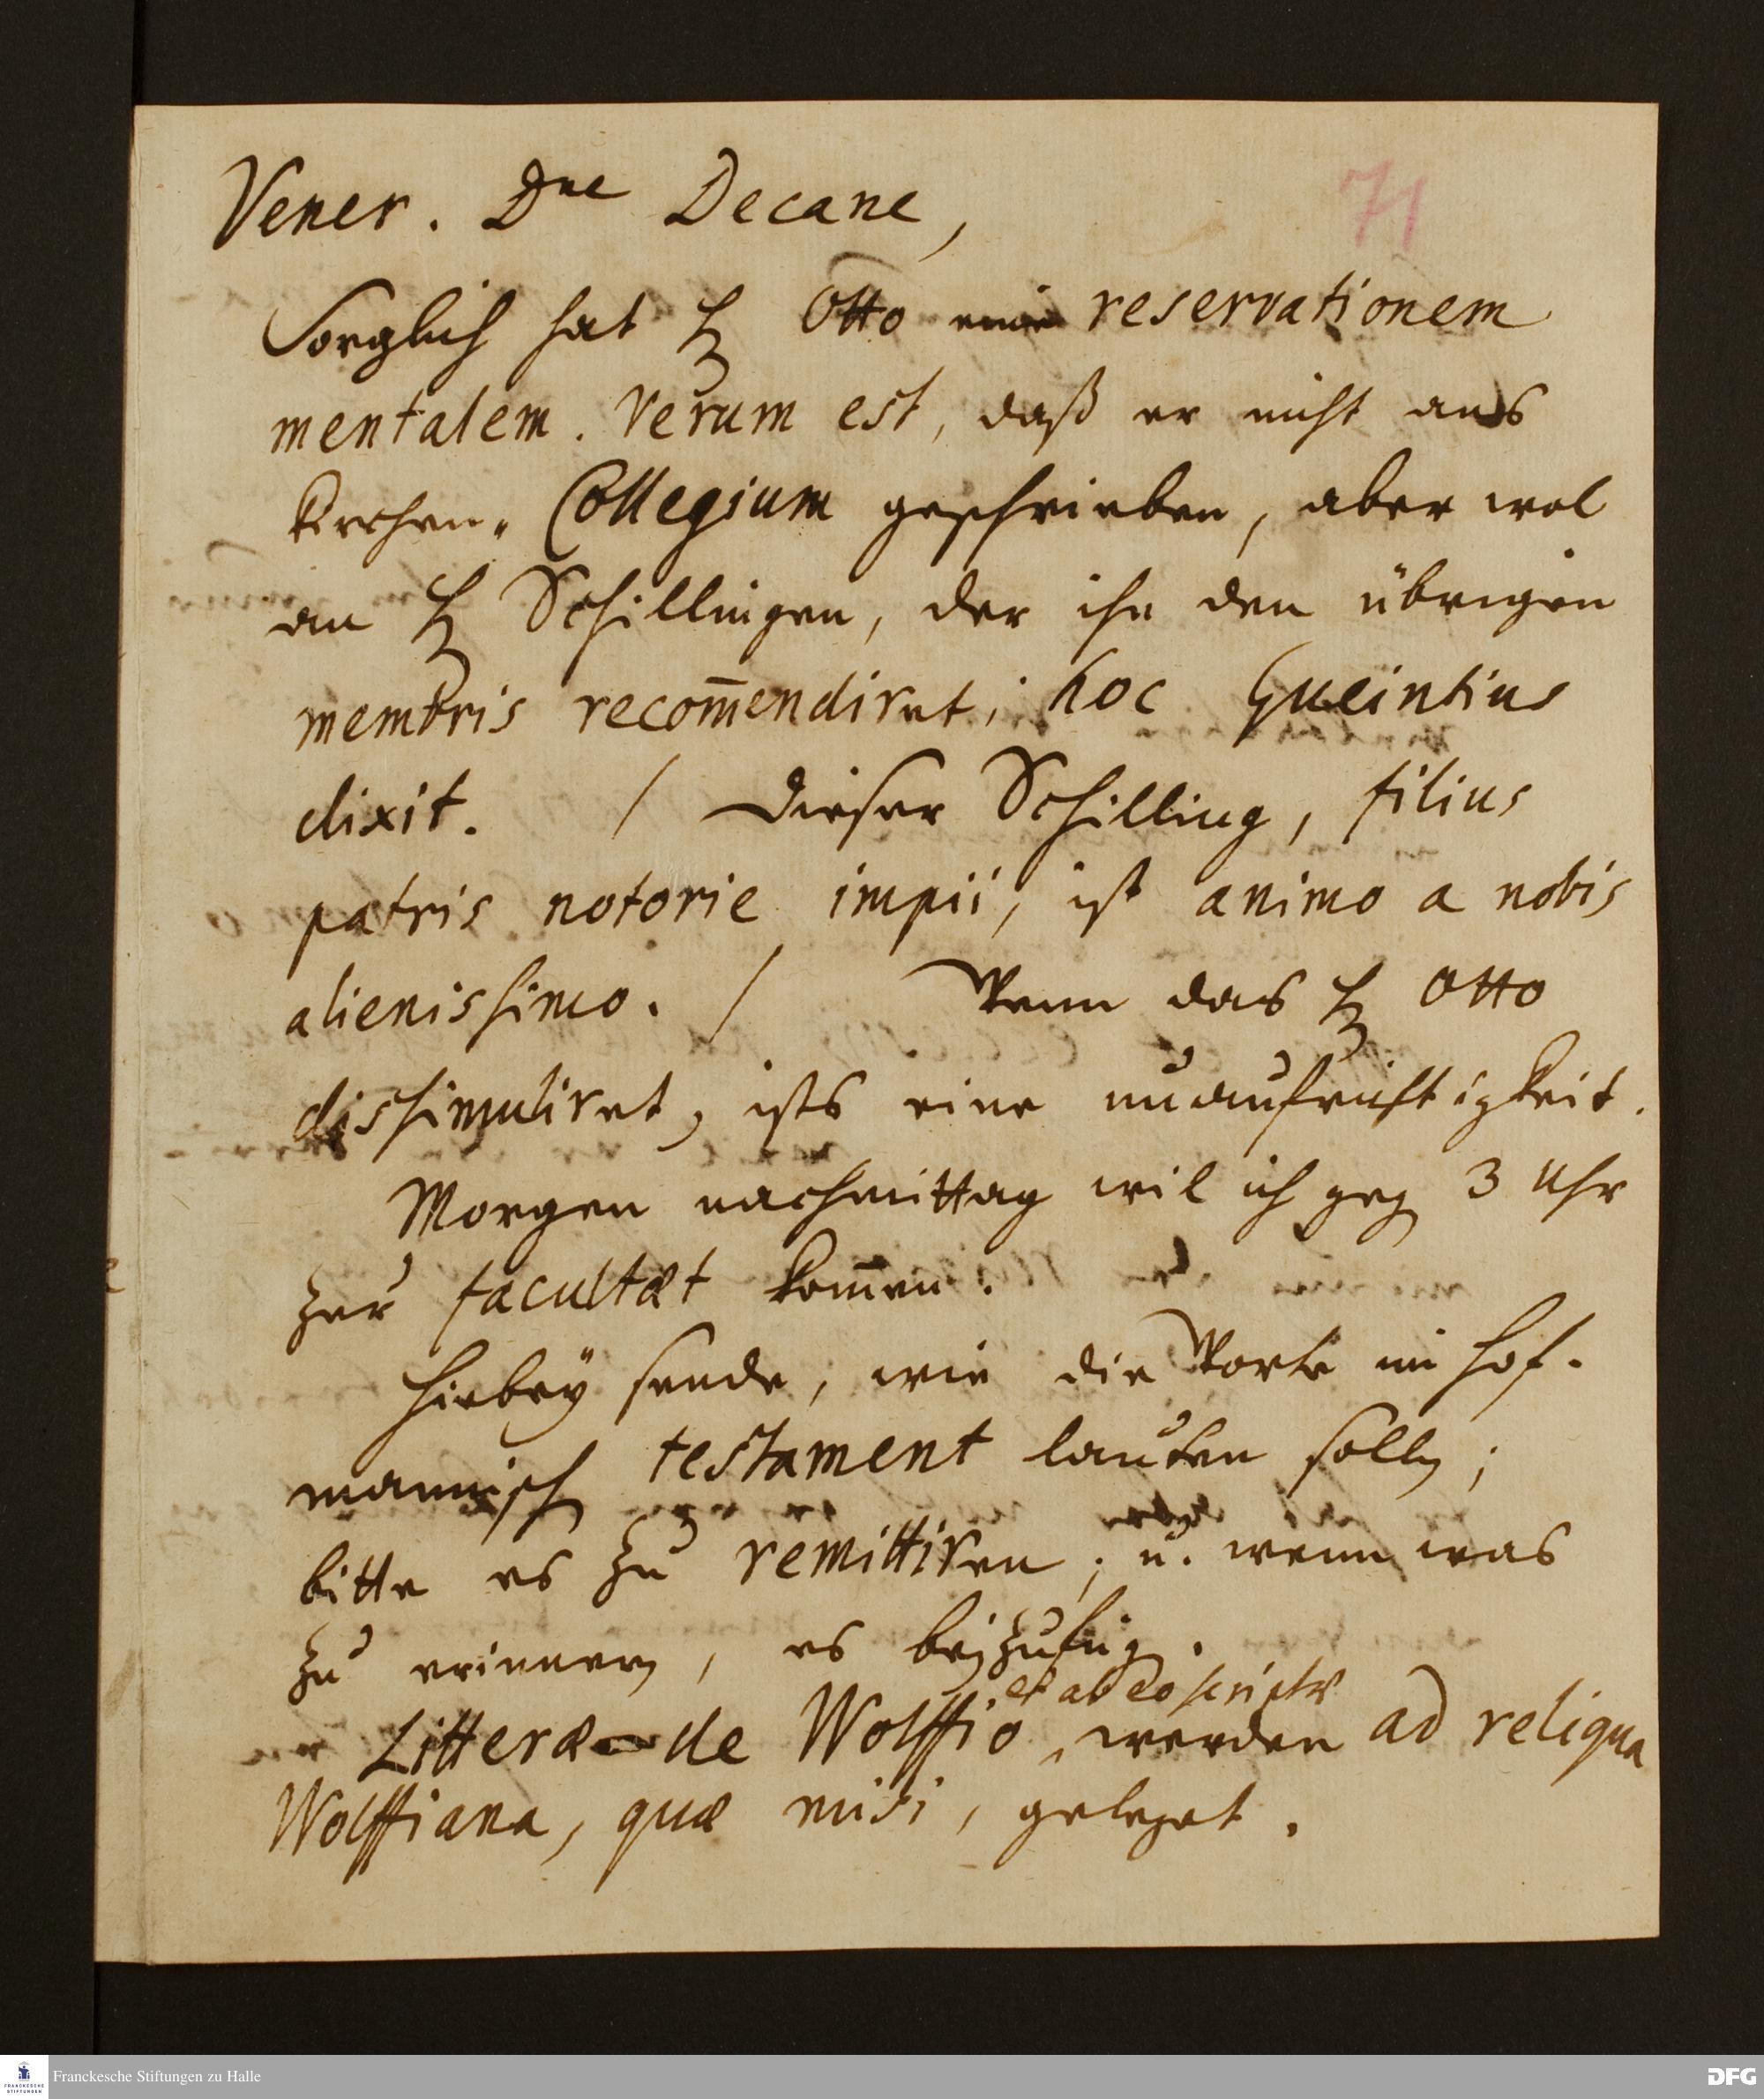 Vener. Dne Decane,
71
Sorglich hat H. Otto eine reservationem
mentalem. Verum est, daß er nicht ans
Kirchen-Collegium geschrieben, aber wol
an H. Schillingen, der ihn den übrigen
membris recom̄endiret; hoc Gueintius
dixit. / Dieser Schilling, filius
patris notorie impii, ist animo a nobis
alienissimo. / Wenn das H. Otto
dissimuliret, ists eine unaufrichtigkeit.
Morgen nachmittag wil ich geg 3 Uhr
zur facultæt kom̄en.
Hiebey sende, wie die Worte im Hof-
mannisch testament lauten solln;
bitte es zu remittiren; u. wenn was
zu erinnern, es beyzufüg.
et ab eo scriptæ
Litteræ de Wolffio, werden ad reliqua
Wolffiana, quæ misi, geleget.
Franckesche Stiftungen zu Halle
FRANCKESCHE STIFTUNGEN
DFG